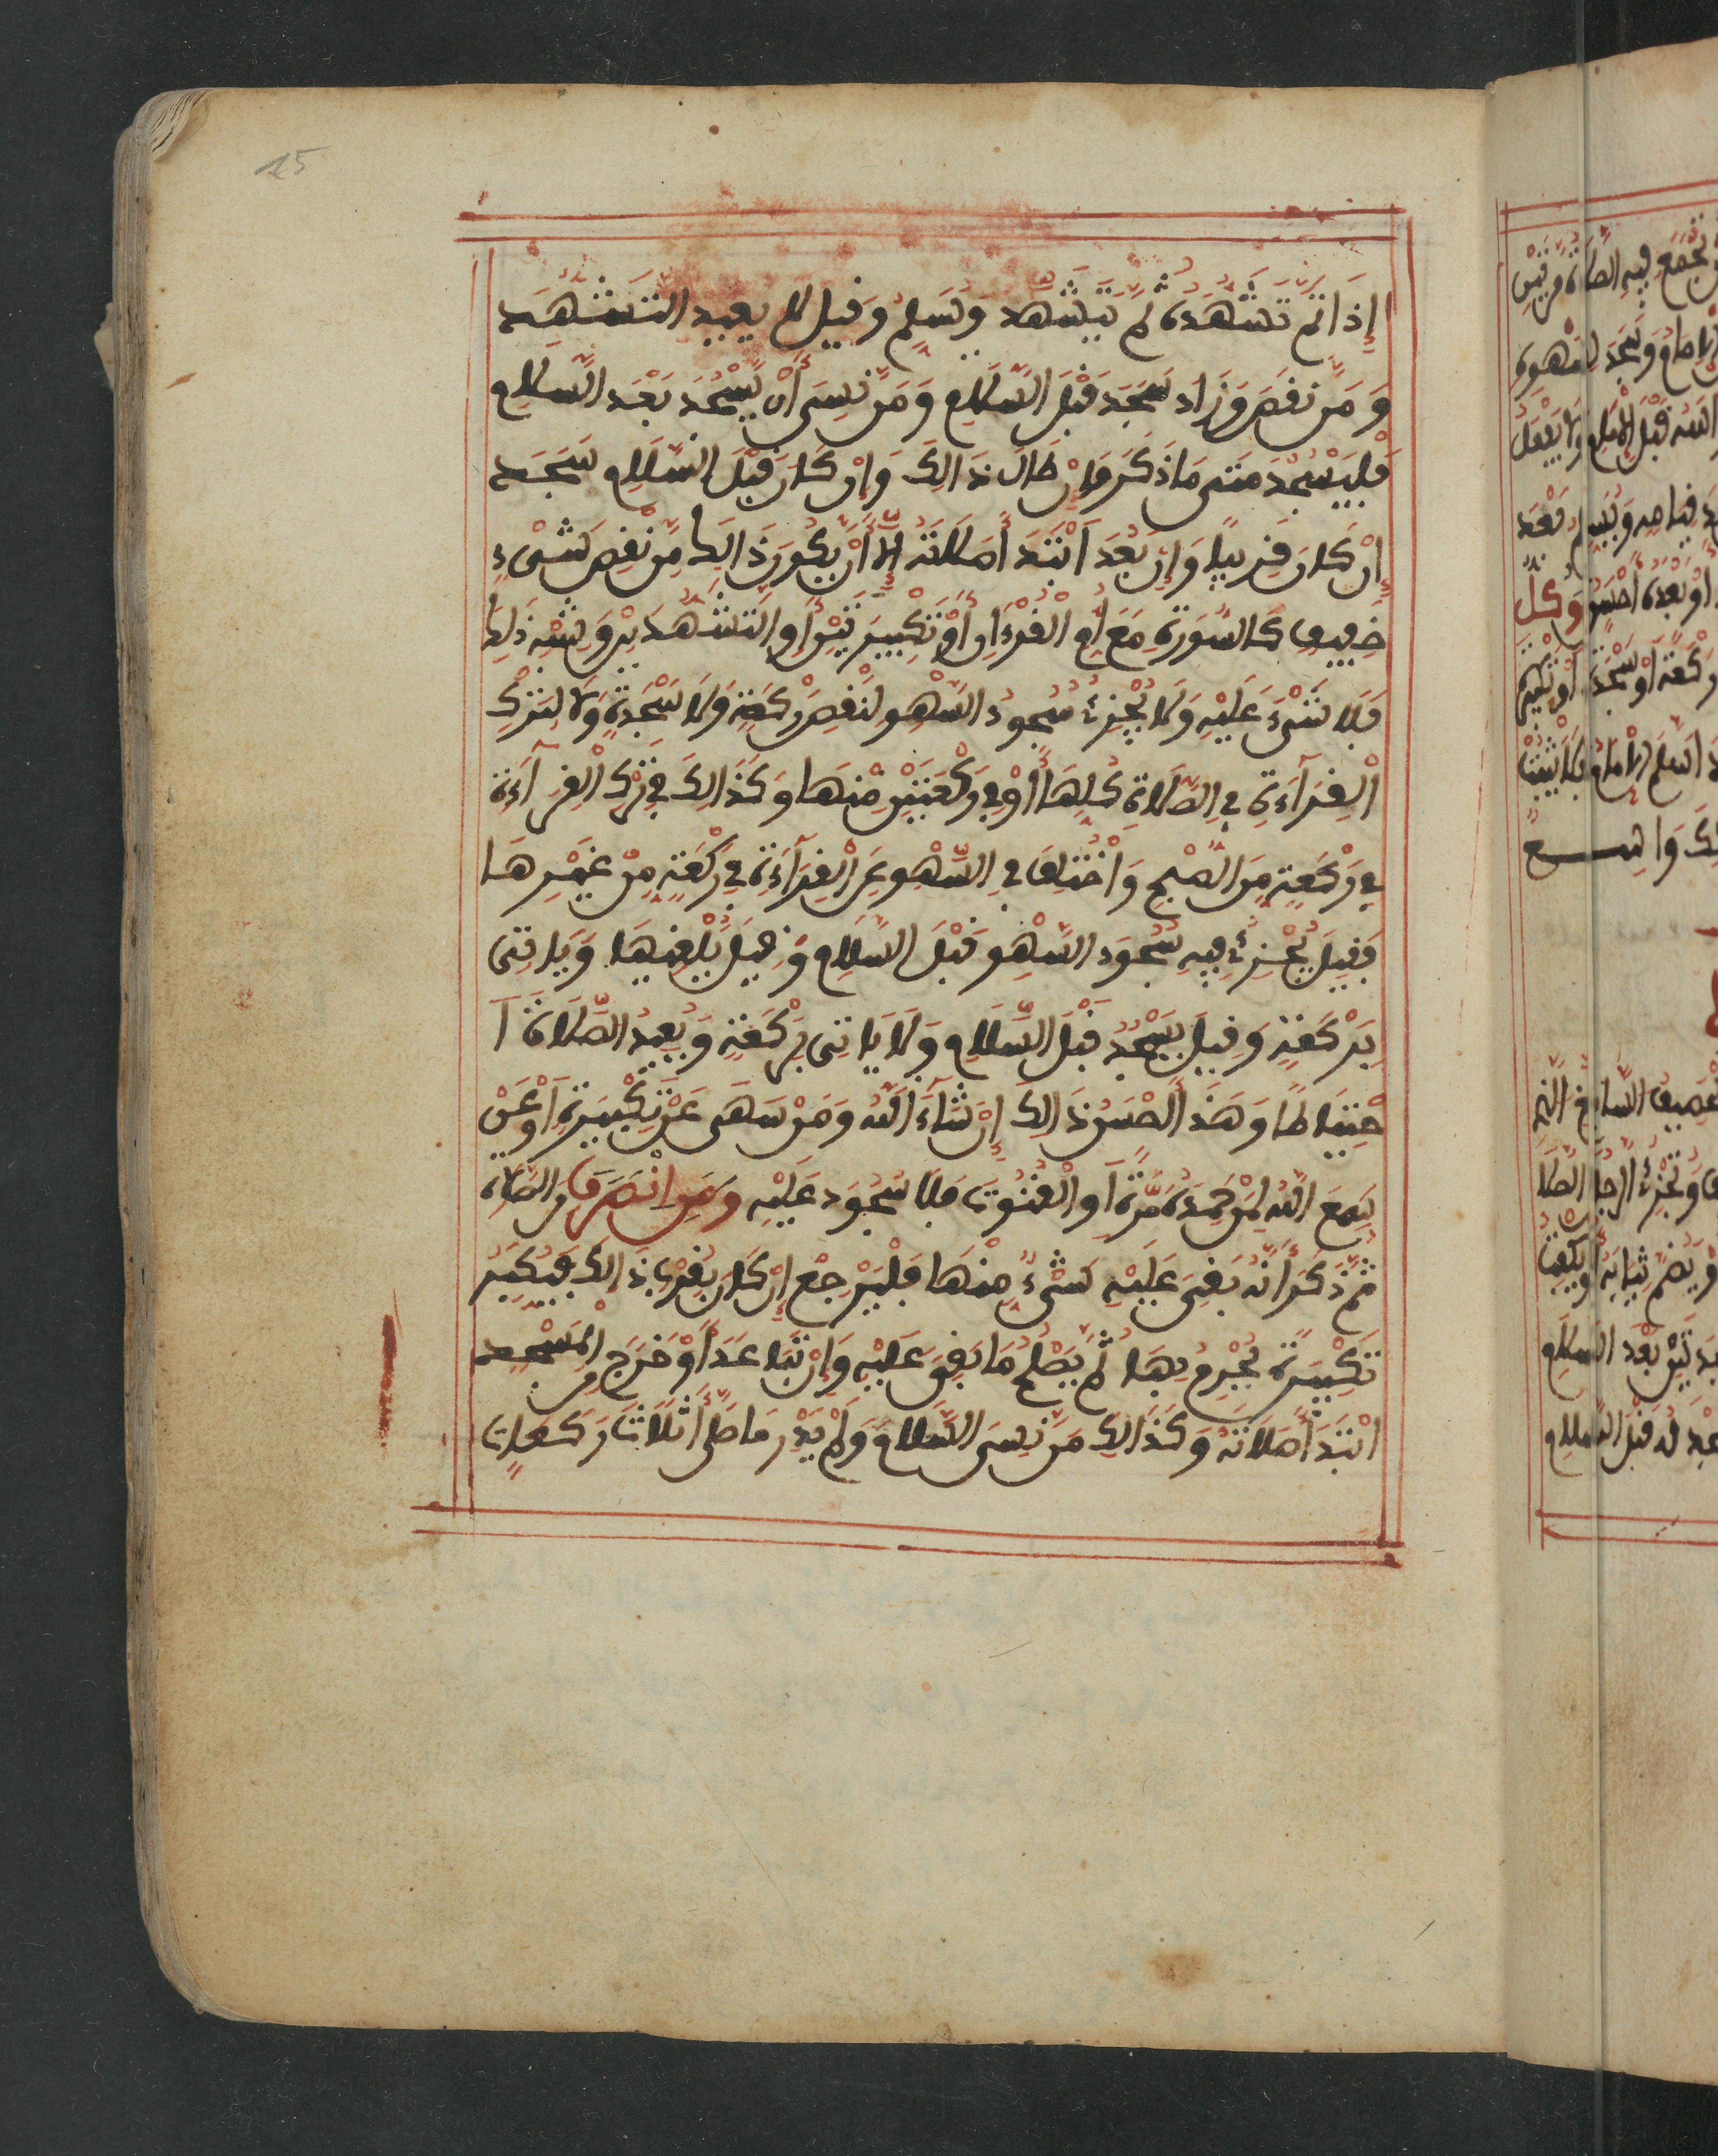 15
إذا تم تشهده ثم يتشهد ويسلم وقيل لا يعيد التشهد
ومن نقص وزاد سجد قبل السلام ومن نسي أن يسجد بعد السلام
فليسجد متى ما ذكر وإن طال ذالك وإن كان قبل السلام سجد
إن كان قريبا وإن بعد ابتدأ صلاته إلا أن يكون ذالك من نقص شيء
خفيف كالسورة مع أم القرءان أو تكبيرتين أو التشهدين وشبه ذلك
فلا شيء عليه ولا يجزئ سجود السهو لنقص ركعة ولا سجدة ولا لترك
القراءة في الصلاة كلها أو في ركعتين منها وكذالك في ترك القراءة
في ركعة من الصبح واختلف في السهو عن القراءة في ركعة من غيرها
فقيل يجزئ فيه سجود السهو قبل السلام وقيل يلغيها وياتي
بركعة وقيل يسجد قبل السلام ولا ياتي بركعة ويعيد الصلاة ا
حتياطا وهذا أحسن ذالك إن شاء الله ومن سهى عن تكبيرة أو عن
سمع الله لمن حمده مرة أو القنوت فلا سجود عليه ومن انصرف من الصلاة
ثم ذكر أنه بقي عليه شيء منها فليرجع إن كان بقرب ذالك فيكبر
تكبيرة يحرم بها ثم يصلي ما بقي عليه وإن تباعد أو خرج من المسجد
ابتدأ صلاته وكذالك من نسي السلام ولم يدر ما صلى أثلاث ركعات